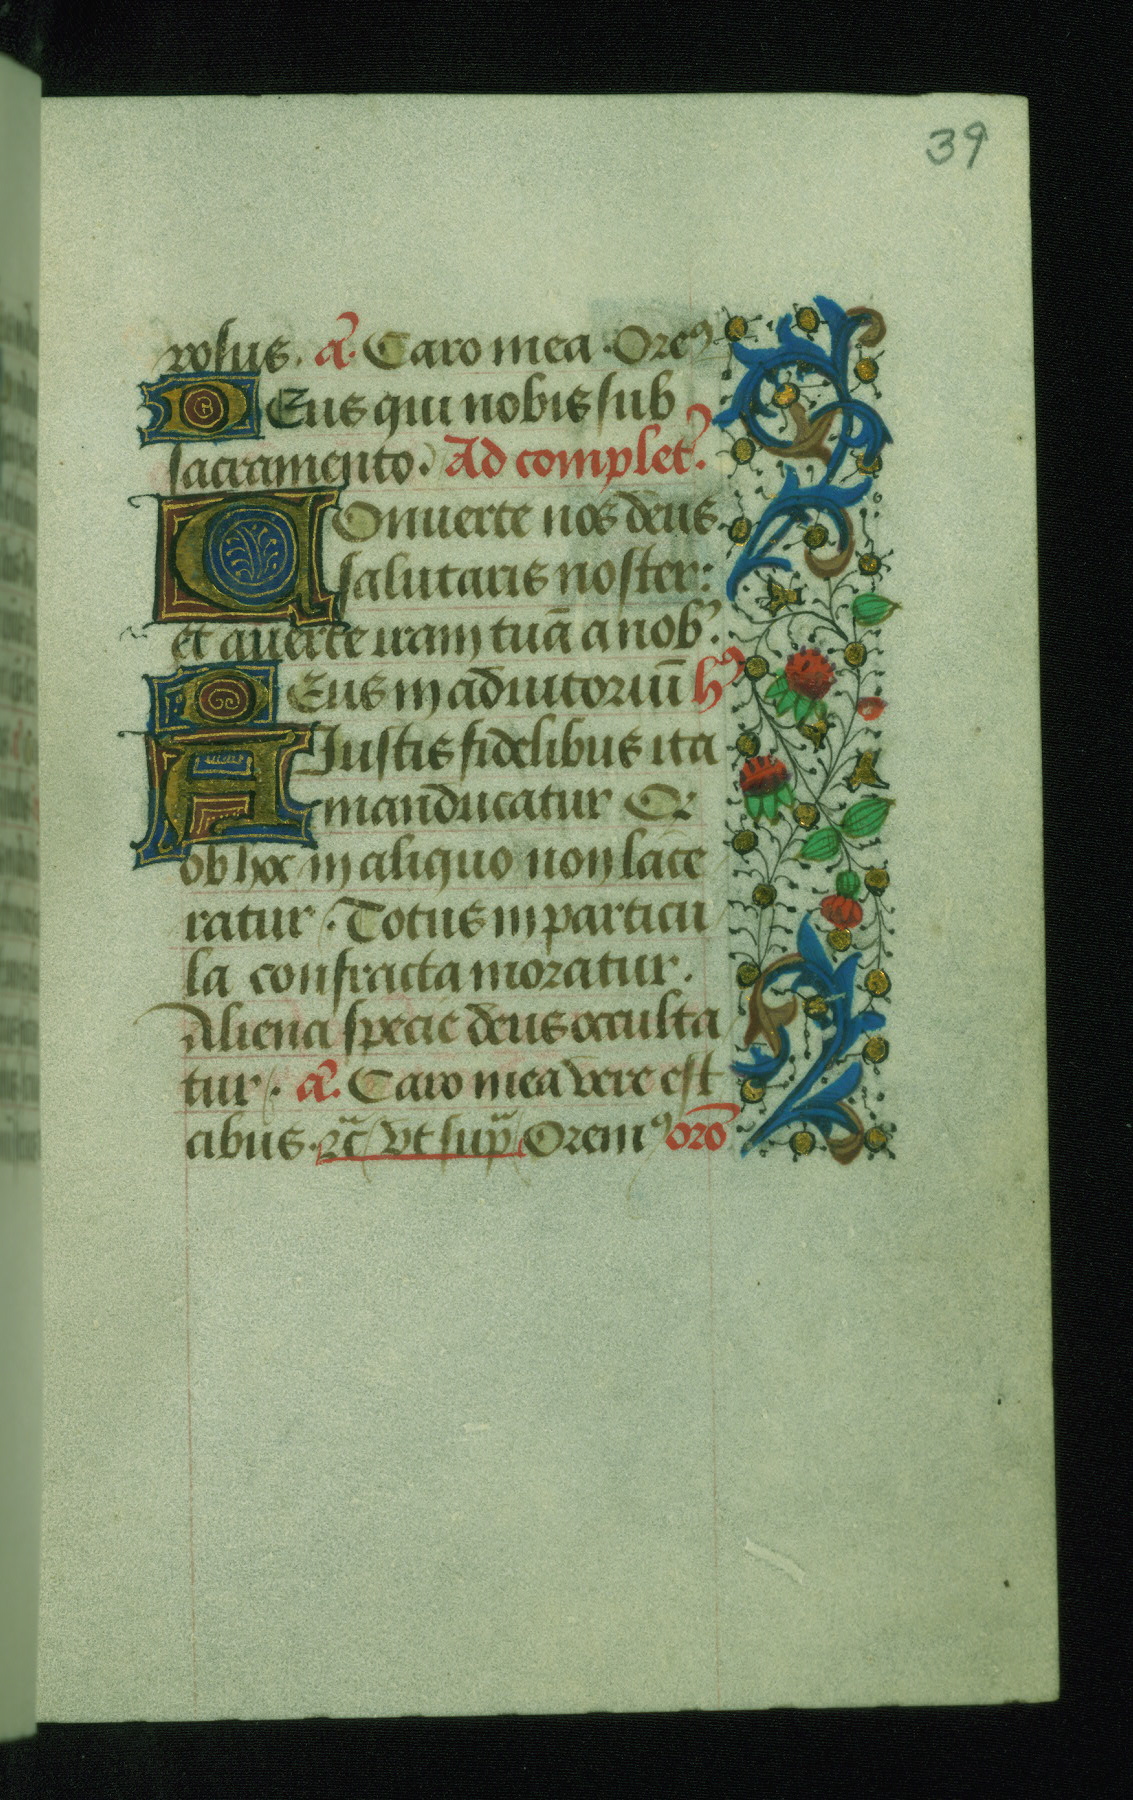 39
rosus. aᷓ. Caro mea. Oreꝰ
DEus qui nobis sub
sacramento. Ad complet᷒.
COnuerte nos deus
salutaris noster:
et auerte iram tuā a nob᷒.
DEus in adiutoriū hꝰ
A Iustis fidelibus ita
manducatur Et
ob hoc in aliquo non lace
ratur. Totus in particu
la confracta moratur.
Aliena specie deus occulta
tur. aᷓ. Caro mea vere est
cibus. ⁊c̄ vt supᷓ Oremꝰ orō